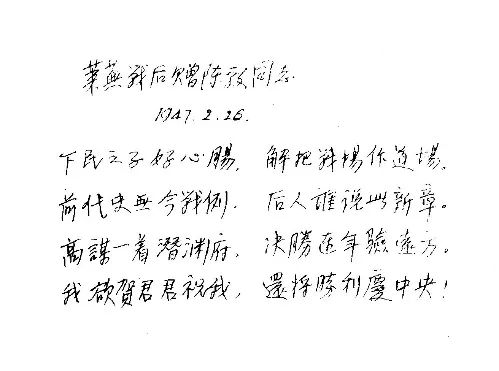 莱蕪战后赠陈毅同志
1947.2.26.
下民之子好心腸, 解把战場作道場.
前代史無今战例. 后人誰説此新章。
高謀一着潜渊府, 决勝年驗遠方。
我賀君君祝我, 還将勝利慶中央!